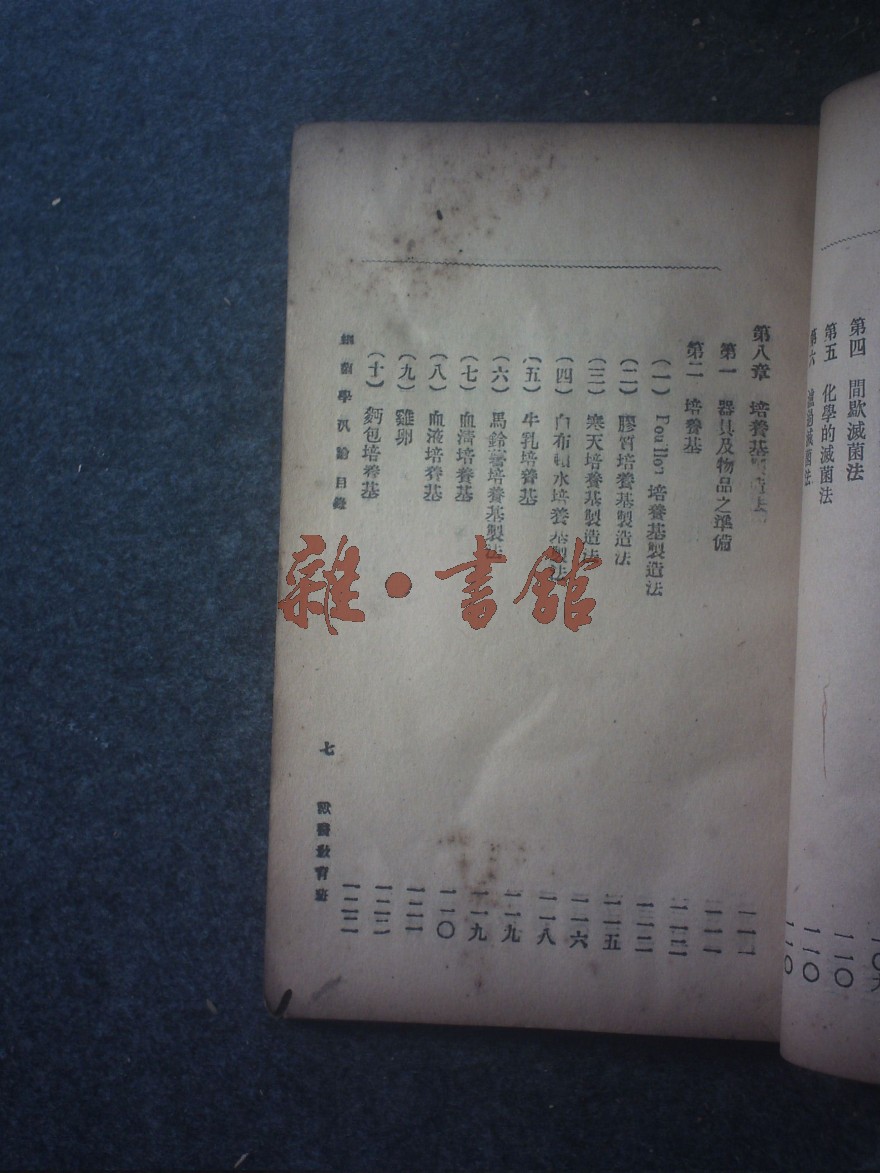 第四 間歇滅菌法
第五 化學的滅菌法 一一〇
第六 滅菌法 一一〇
第八章 培養基 一一一
第一 器具及物品之準備 一一一
第二 培養基
(一) Bouillon 培養基製造法
(二) 膠質培養基製造法
(三) 寒天培養基製造法 一一五
(四) 水培養基製法 一一六
(五) 牛乳培養基 一一八
(六) 馬鈴薯培養基製法 一一九
(七) 血清培養基 一一九
(八) 血液培養基
(九) 雞卵
(十) 麪包培養基
細菌學汎論目錄
七
獸醫教育班
雜·書館